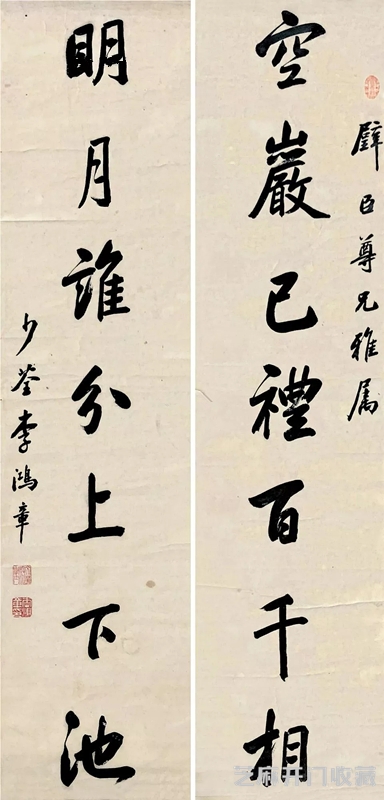 璧臣尊兄雅属
空巖已禮百千相
明月誰分上下池
少荃李鴻章